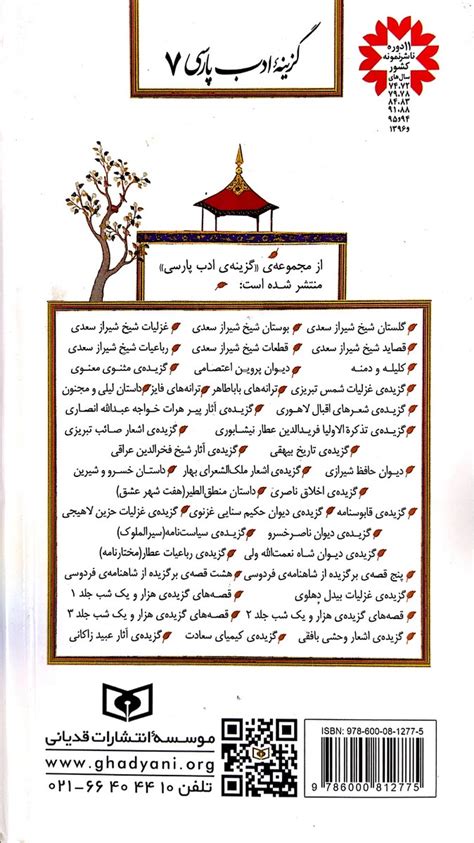 گزینهٔ ادب پارسی ۷
۱۱ دوره
ناشر نمونه
کشور
سال‌های
۷۴،۷۲
۷۹،۷۸
۸۴،۸۳
۹۱،۸۸
۹۴و۹۵
و۱۳۹۶
از مجموعه‌ی «گزینه‌ی ادب پارسی»
منتشر شده است:
گلستان شیخ شیراز سعدی بوستان شیخ شیراز سعدی غزلیات شیخ شیراز سعدی
قصاید شیخ شیراز سعدی قطعات شیخ شیراز سعدی رباعیات شیخ شیراز سعدی
کلیله و دمنه دیوان پروین اعتصامی گزیده‌ی مثنوی معنوی
گزیده‌ی غزلیات شمس تبریزی ترانه‌های باباطاهر ترانه‌های فایز داستان لیلی و مجنون
گزیده‌ی شعرهای اقبال لاهوری گزیده‌ی آثار پیر هرات خواجه عبدالله انصاری
گزیده‌ی تذکرة الاولیا فریدالدین عطار نیشابوری گزیده‌ی اشعار صائب تبریزی
گزیده‌ی تاریخ بیهقی گزیده‌ی آثار شیخ فخرالدین عراقی
دیوان حافظ شیرازی گزیده‌ی اشعار ملک‌الشعرای بهار داستان خسرو و شیرین
گزیده‌ی اخلاق ناصری داستان منطق‌الطیر(هفت شهر عشق)
گزیده‌ی قابوسنامه گزیده‌ی دیوان حکیم سنایی غزنوی گزیده‌ی غزلیات حزین لاهیجی
گزیده‌ی دیوان ناصرخسرو گزیده‌ی سیاست‌نامه(سیرالملوک)
گزیده‌ی دیوان شاه نعمت‌الله ولی گزیده‌ی رباعیات عطار(مختارنامه)
پنج قصه‌ی برگزیده از شاهنامه‌ی فردوسی هشت قصه‌ی برگزیده از شاهنامه‌ی فردوسی
گزیده‌ی غزلیات بیدل دهلوی قصه‌های گزیده‌ی هزار و یک شب جلد ۱
قصه‌های گزیده‌ی هزار و یک شب جلد ۲ قصه‌های گزیده‌ی هزار و یک شب جلد ۳
گزیده‌ی اشعار وحشی بافقی گزیده‌ی کیمیای سعادت گزیده‌ی آثار عبید زاکانی
موسسهٔ انتشارات قدیانی
www.ghadyani.org
تلفن ۱۰ ۴۴ ۴۰ ۶۶-۰۲۱
ISBN: 978-600-08-1277-5
9 786000 812775